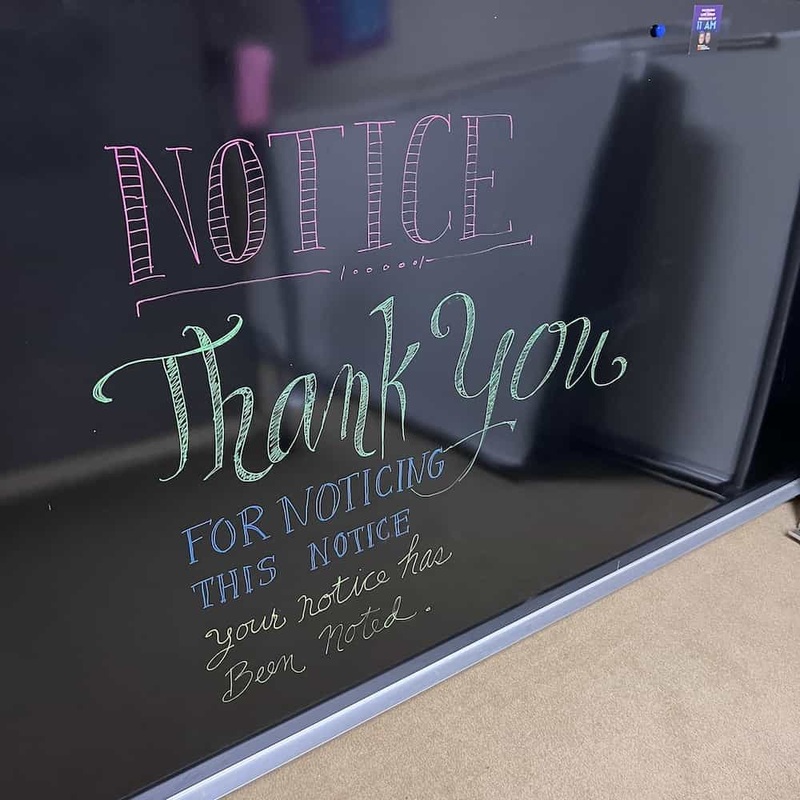 11 AM
NOTICE
Thank You
FOR NOTICING
THIS NOTICE
your notice has
Been noted.